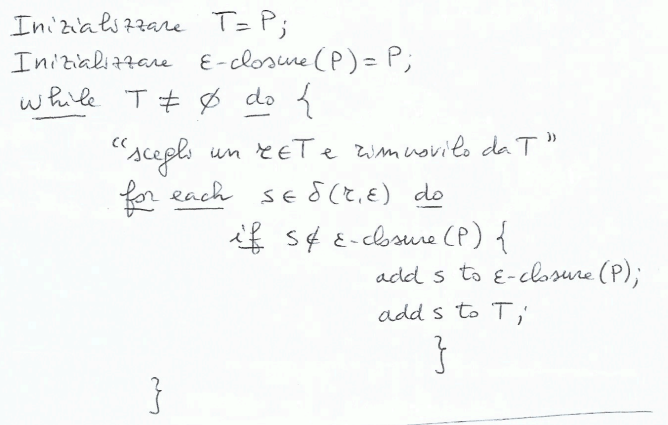 Inizializzare T = P;
Inizializzare ε-closure(P) = P;
while T ≠ ∅ do {
"scegli un r∈T e rimuovilo da T"
for each s ∈ δ(r,ε) do
if s ∉ ε-closure(P) {
add s to ε-closure(P);
add s to T;
}
}